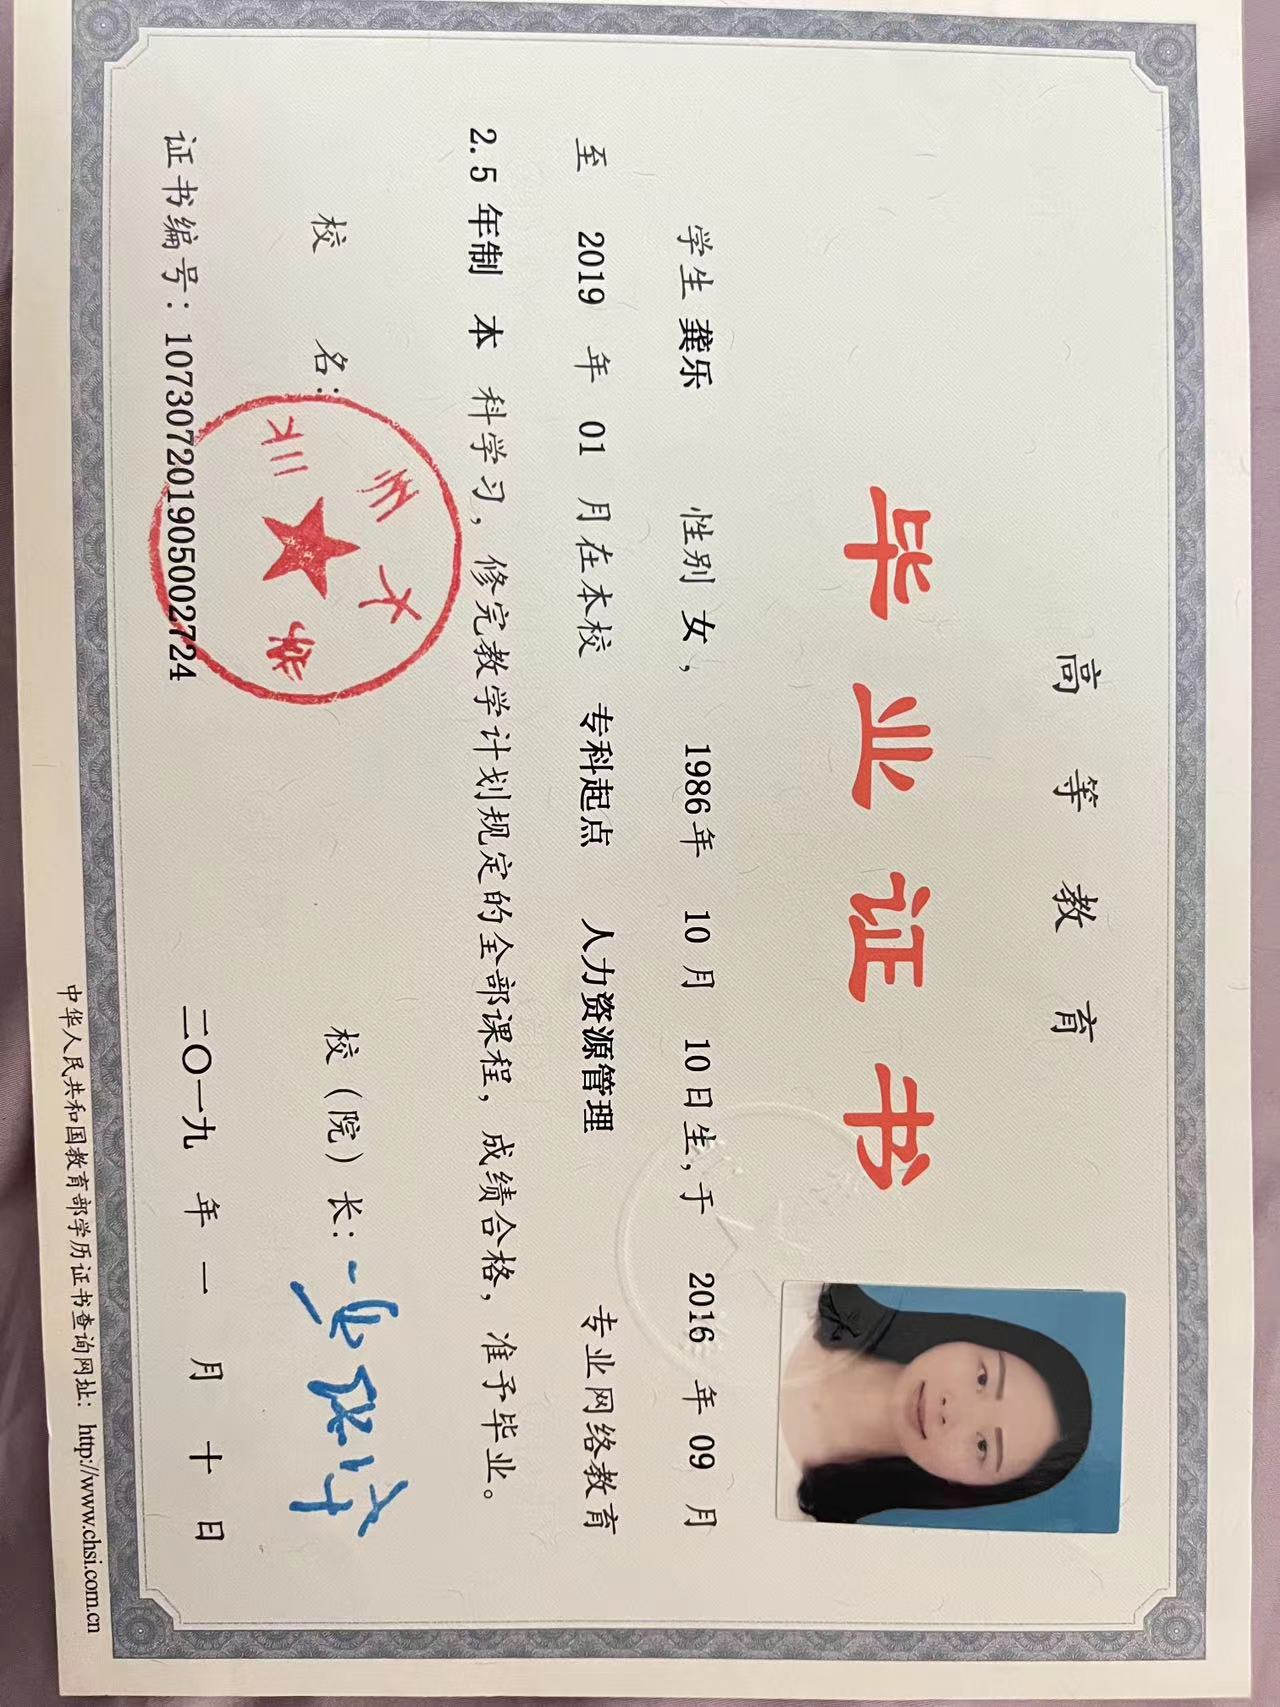 高等教育
毕业证书
学生 龚乐 性别 女， 1986年 10 月 10日生,于 2016 年 09 月
至 2019 年 01 月在本校 专科起点 人力资源管理 专业网络教育
2.5 年制 本 科学习，修完教学计划规定的全部课程，成绩合格，准予毕业。
校 名： 兰州大学
校（院）长：
证书编号：107307201905002724
二〇一九 年 一 月 十 日
中华人民共和国教育部学历证书查询网址：http://www.chsi.com.cn